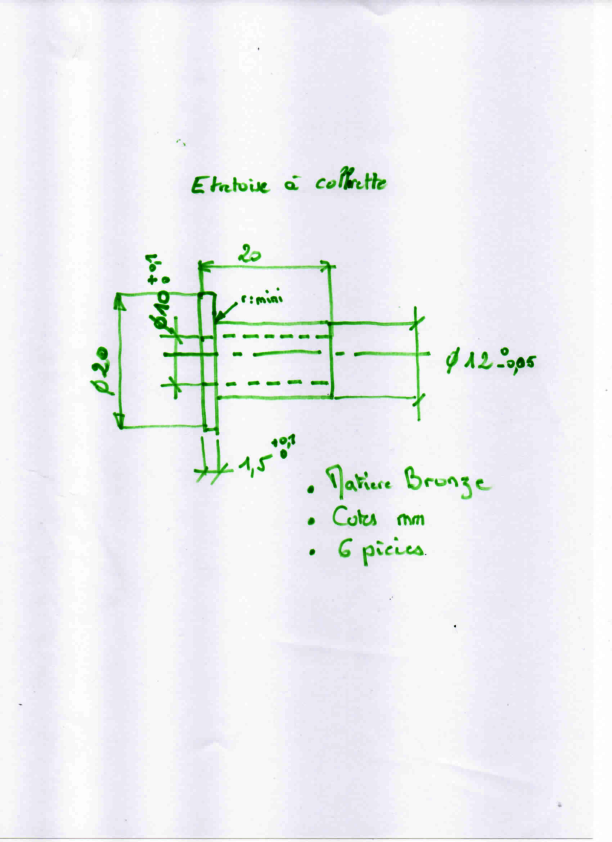 Etretoise à collrette
20
Ø10 +0,1 0
r:mini
Ø20
Ø12 0 -0,05
1,5 +0,1 0
• Matiere Bronze
• Cotes mm
• 6 pièces.